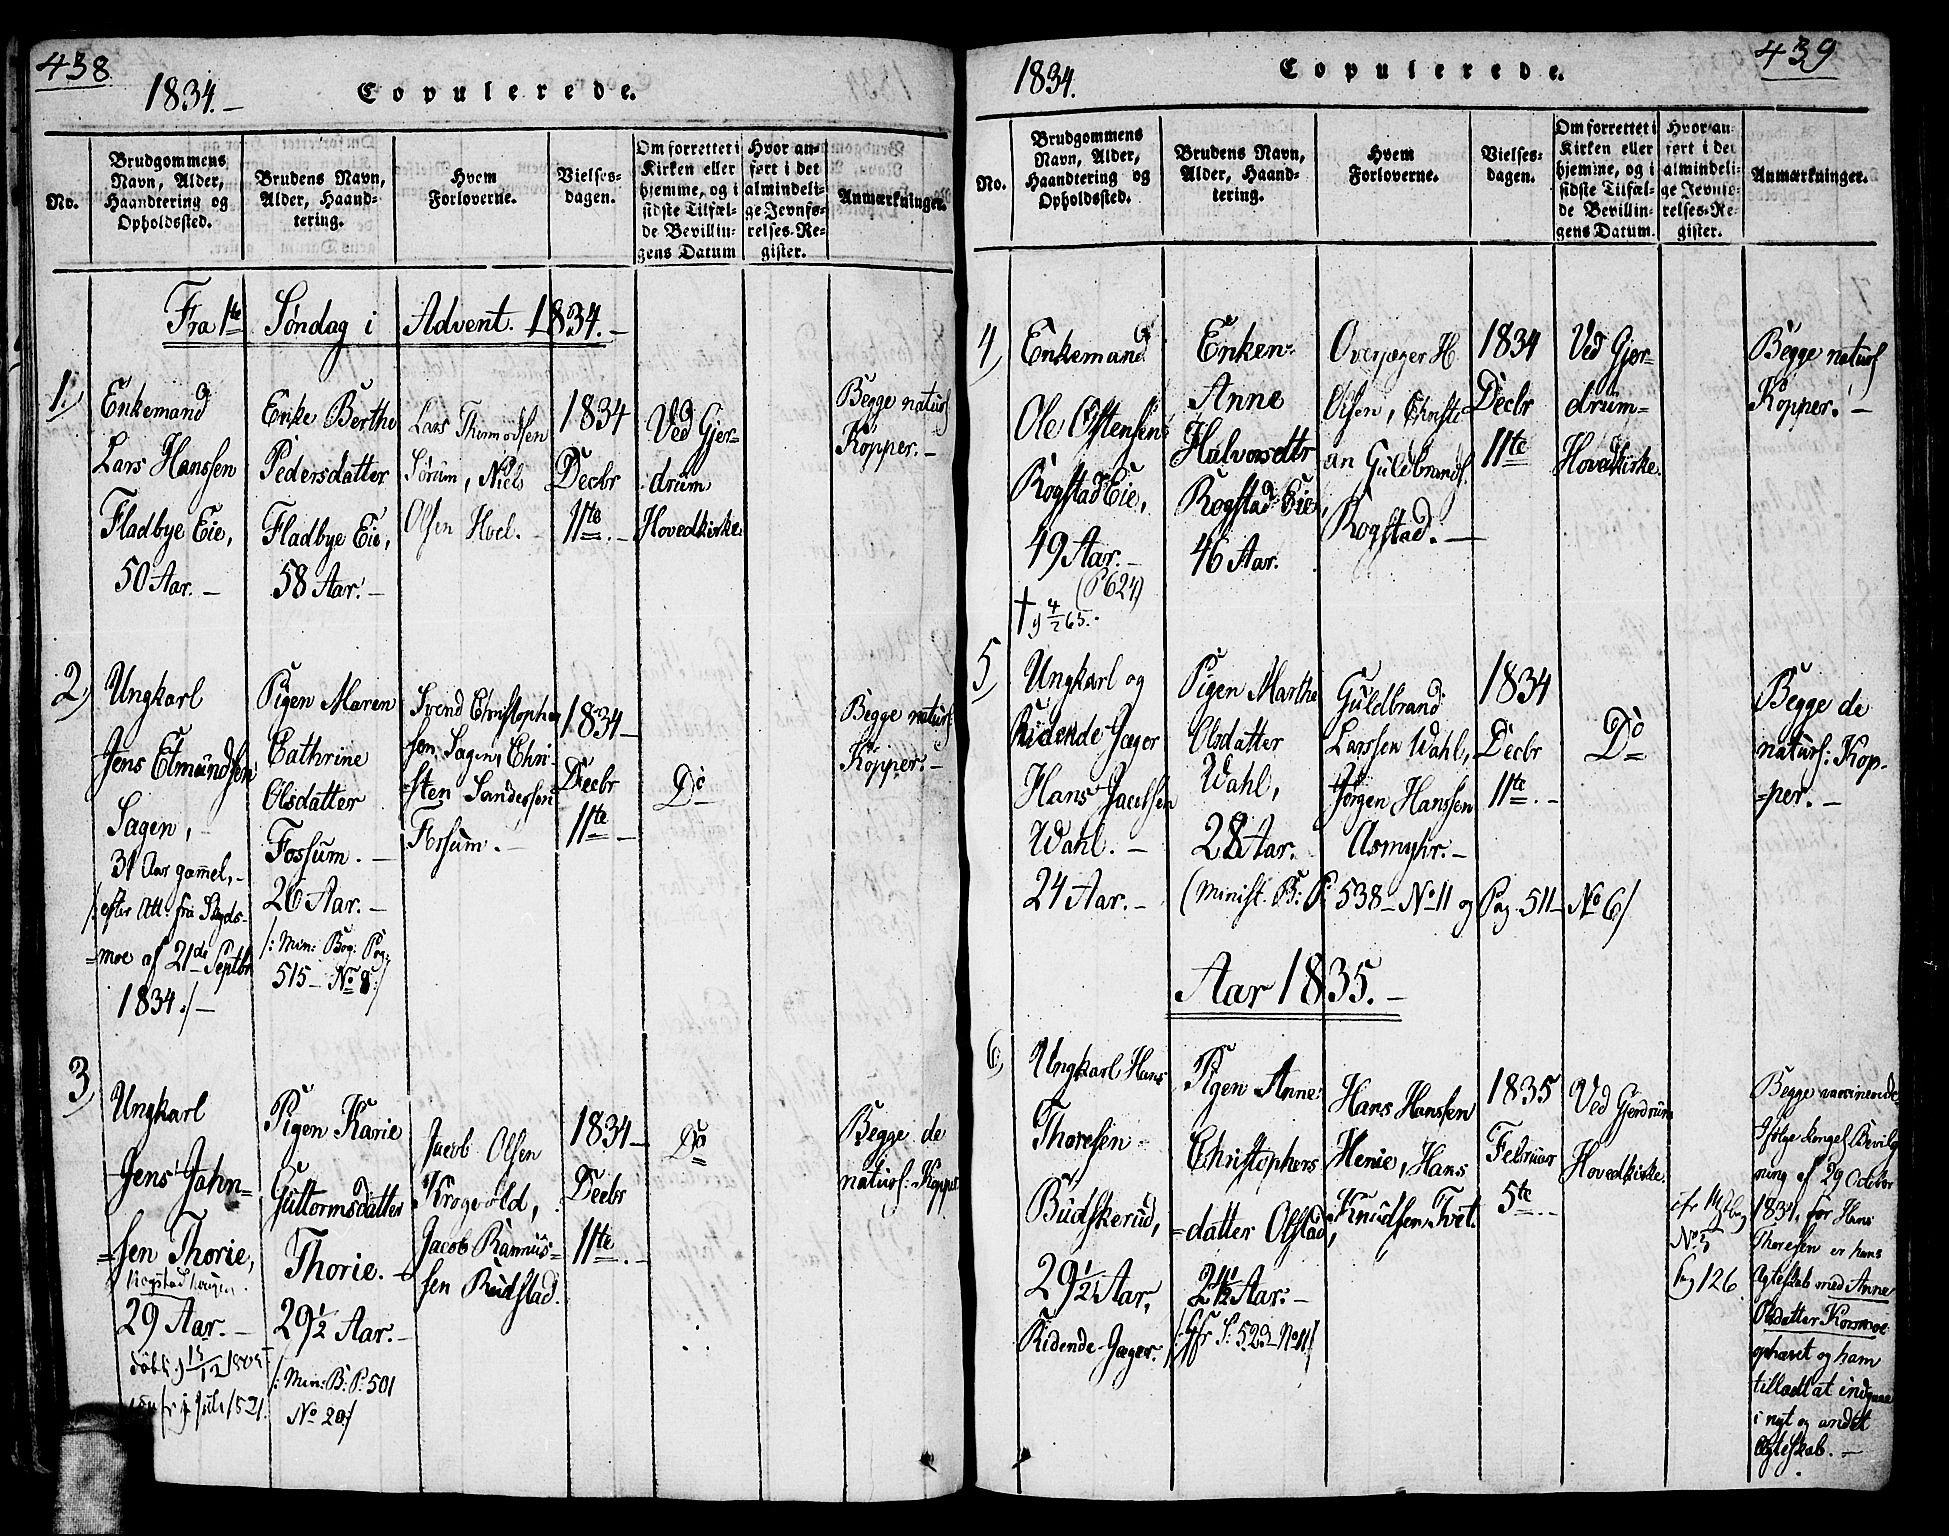 438
1834.–
Copulerede.
No.
Brudgommens
Navn, Alder,
Haandtering og
Opholdssted.
Brudens Navn,
Alder, Haand-
tering.
Hvem
Forloverne.
Vielses-
dagen.
Om forrettet i
Kirken eller
hjemme, og i
sidste Tilfæl-
de Bevillin-
gens Datum
Hvor an-
ført i det
almindeli-
ge Jevnfø-
relses-Re-
gister.
Anmærkninger.
Fra 1te Søndag i Advent. 1834.–
1.)
Enkemand
Lars Hanssen
Fladbye Eie,
50 Aar.–
Enke Berthe
Pedersdatter
Fladbye Eie,
58 Aar.–
Lars Thormodsen
Sørum, Niels
Olsen Hoel.–
1834
Decbr
11te.–
Ved Gjer-
drum
Hovedkirke.
Begge naturl
Kopper.–
2.)
Ungkarl
Jens Etmundsen
Sagen,–
31 Aar gammel,–
/:efter Att: fra Skyds-
=moe af 21de Septbr
1834:/–
Pigen Maren
Cathrine
Olsdatter
Fossum.–
26 Aar.–
/:Min: Bog: Pag:
515– No 8:/
Svend Christopher
sen Sagen, Chri-
sten Sandersen
Fossum.–
1834–
Decbr
11te–
Do
Begge naturl:
Kopper:–
3)
Ungkarl
Jens John-
=sen Thorie,
29 Aar.–
Pigen Karie
Guttormsdatter
Thorie.–
29½ Aar.–
/:Min: B: P: 501
No 20:/
Jacob Olsen
Krogvold,
Jacob Rasmus-
sen Rudstad.
1834–
Decbr
11te.–
Do
Begge de
naturl: Kopper
439
1834.
Copulerede.
No.
Brudgommens
Navn, Alder,
Haandtering og
Opholdssted.
Brudens Navn,
Alder, Haand-
tering.
Hvem
Forloverne.
Vielses-
dagen.
Om forrettet i
Kirken eller
hjemme, og i
sidste Tilfæl-
de Bevillin-
gens Datum.
Hvor an-
ført i det
almindeli-
ge Jevnfø-
relses-Re-
gister.
Anmærkninger.
4)
Enkemand
Ole Østensen
Rogstad Eie,
49 Aar.–
(P 624)
† 9 4/2 65.
Enken
Anne
Halvorsdtr
Rogstad Eie,
46 Aar.
Overjæger H.
Olsen, Christi-
an Guldbrands.
Rogstad.–
1834
Decbr
11te
Ved Gjer-
drum-
Hovedkirke.
Begge naturl
Kopper.–
5)
Ungkarl og
Ridende Jæger
Hans Jacobsen
Wahl.–
24 Aar.–
Pigen Marthe
Olsdatter
Wahl,
28 Aar.
Guldbrand
Larssen Wahl,
Jørgen Hanssen
Asmyhr.–
1834
Decbr
11te.–
Do
Begge de
naturl: Kop-
=per.–
(Minist. B: P. 538– No 11 og Pag. 511– No 6/
Aar 1835.–
6)
Ungkarl Hans
Thoresen
Budskerud,
29½ Aar,
Ridende Jæger.
Pigen Anne
Christophers
=datter Olstad,
24½ Aar:–
/:Cfr S: 523– No 11/
Hans Hanssen
Henie, Hans
Knudsen Tvet.
1835
Februar
5te.–
Ved Gjerdrum
Hovedkirke.
No 5
Pag 126
Begge vaccinerede.
Ifølge kongel. Bevilg
ning af 29 October
1834, for Hans
Thoresen er hans
Egteskab med Anne
Olsdatter Kormoe
ophævet og ham
tilladt at indgaae
i nyt og andet
Egteskab.–